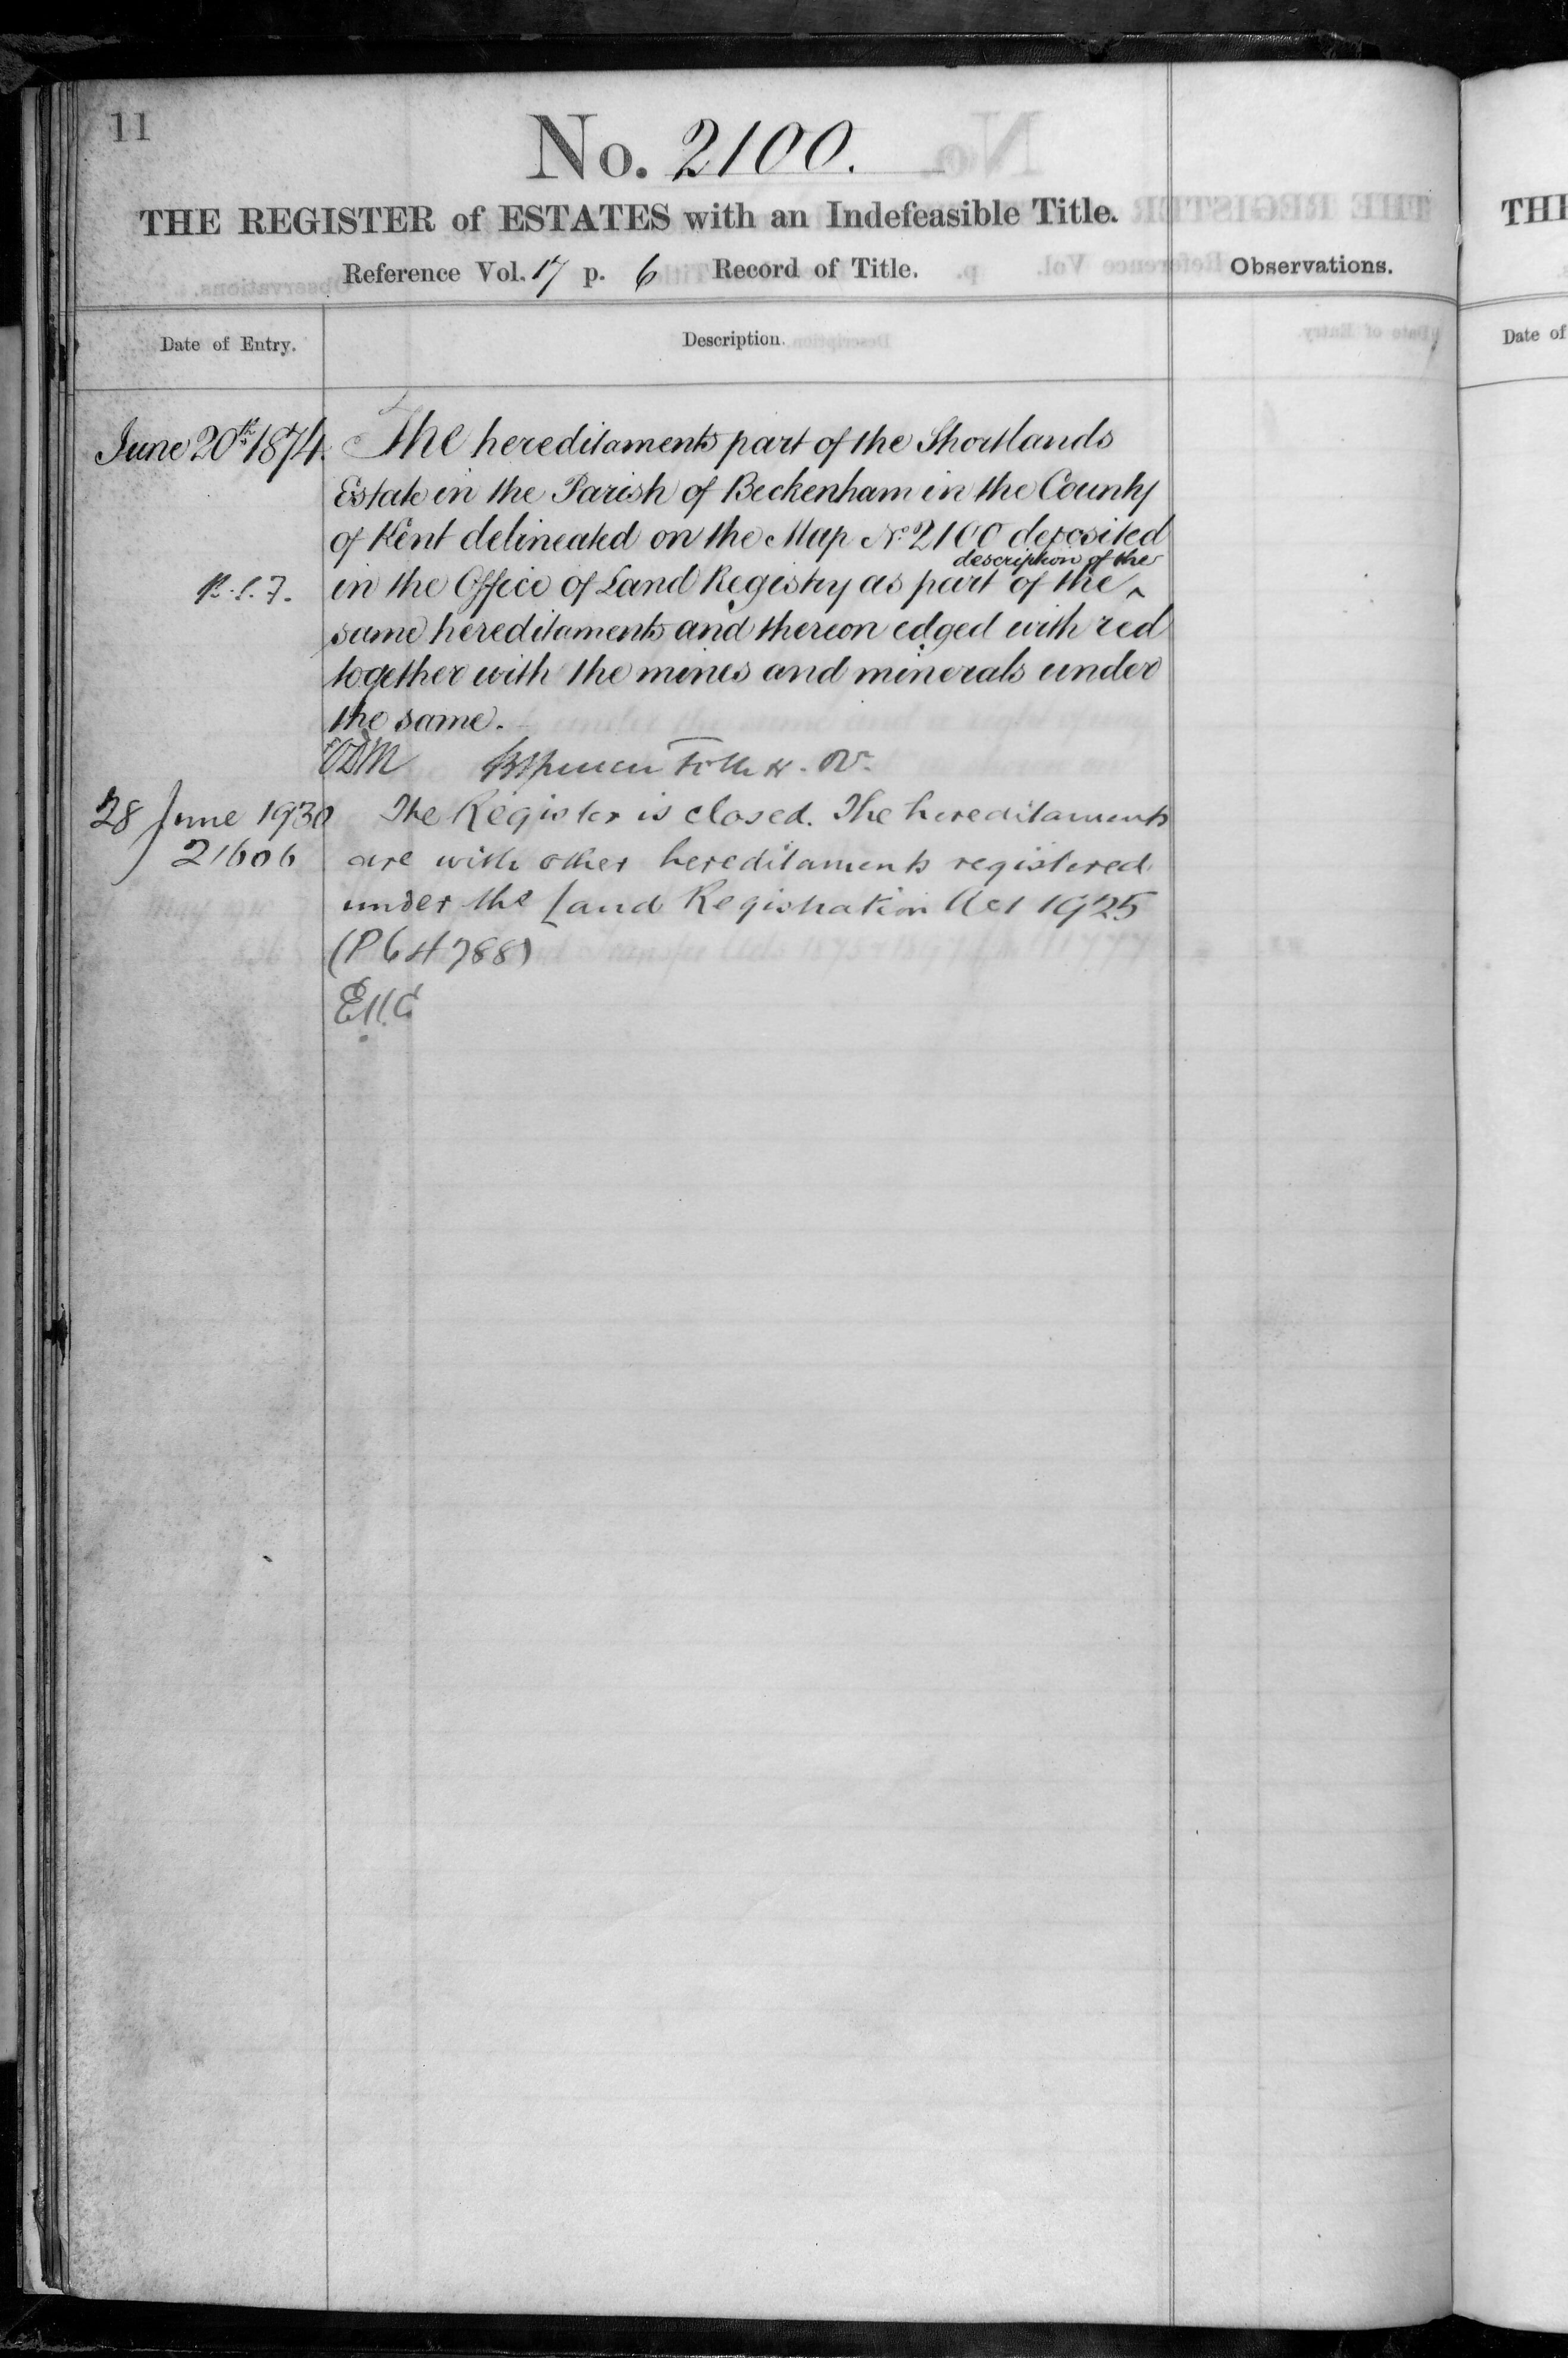 11
No. 2100.
THE REGISTER of ESTATES with an Indefeasible Title.
Reference Vol. 17 p. 6 Record of Title.
Observations.
Date of Entry.
Description.
June 20th 1874. The hereditaments part of the Shortlands
Estate in the Parish of Beckenham in the County
of Kent delineated on the Map No. 2100 deposited
in the Office of Land Registry as part of the ^ description of the
same hereditaments and thereon edged with red
together with the mines and minerals under
the same.
28 June 1930 The Register is closed. The hereditaments
21606 are with other hereditaments registered
under the Land Registration Act 1925
(P64788)
THE
Date of